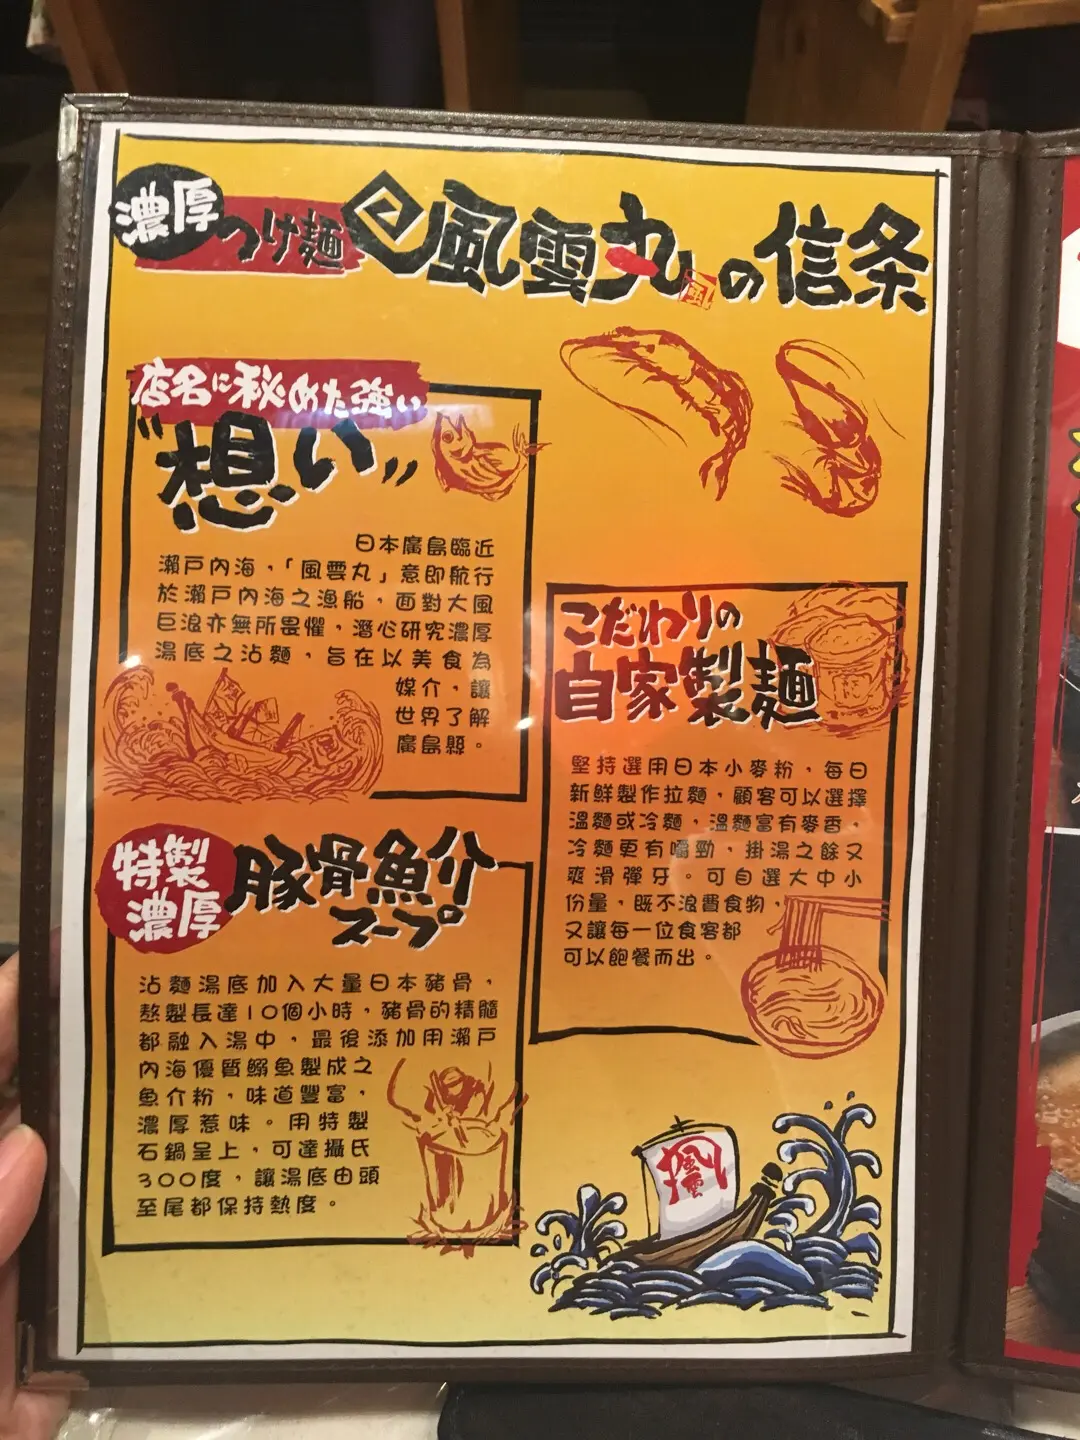 濃厚つけ麺風雲丸の信条
店名に秘めた強い
"想い"
日本廣島臨近
瀨戶內海，「風雲丸」意即航行
於瀨戶內海之漁船，面對大風
巨浪亦無所畏懼，潛心研究濃厚
湯底之沾麵，旨在以美食為
媒介，讓
世界了解
廣島縣。
こだわりの
自家製麺
堅持選用日本小麥粉，每日
新鮮製作拉麵，顧客可以選擇
溫麵或冷麵，溫麵富有麥香，
冷麵更有嚼勁，掛湯之餘又
爽滑彈牙。可自選大中小
份量，既不浪費食物，
又讓每一位食客都
可以飽餐而出。
特製
濃厚
豚骨魚介
スープ
沾麵湯底加入大量日本豬骨，
熬製長達10個小時，豬骨的精髓
都融入湯中，最後添加用瀨戶
內海優質鰯魚製成之
魚介粉，味道豐富，
濃厚惹味。用特製
石鍋呈上，可達攝氏
300度，讓湯底由頭
至尾都保持熱度。
風雲